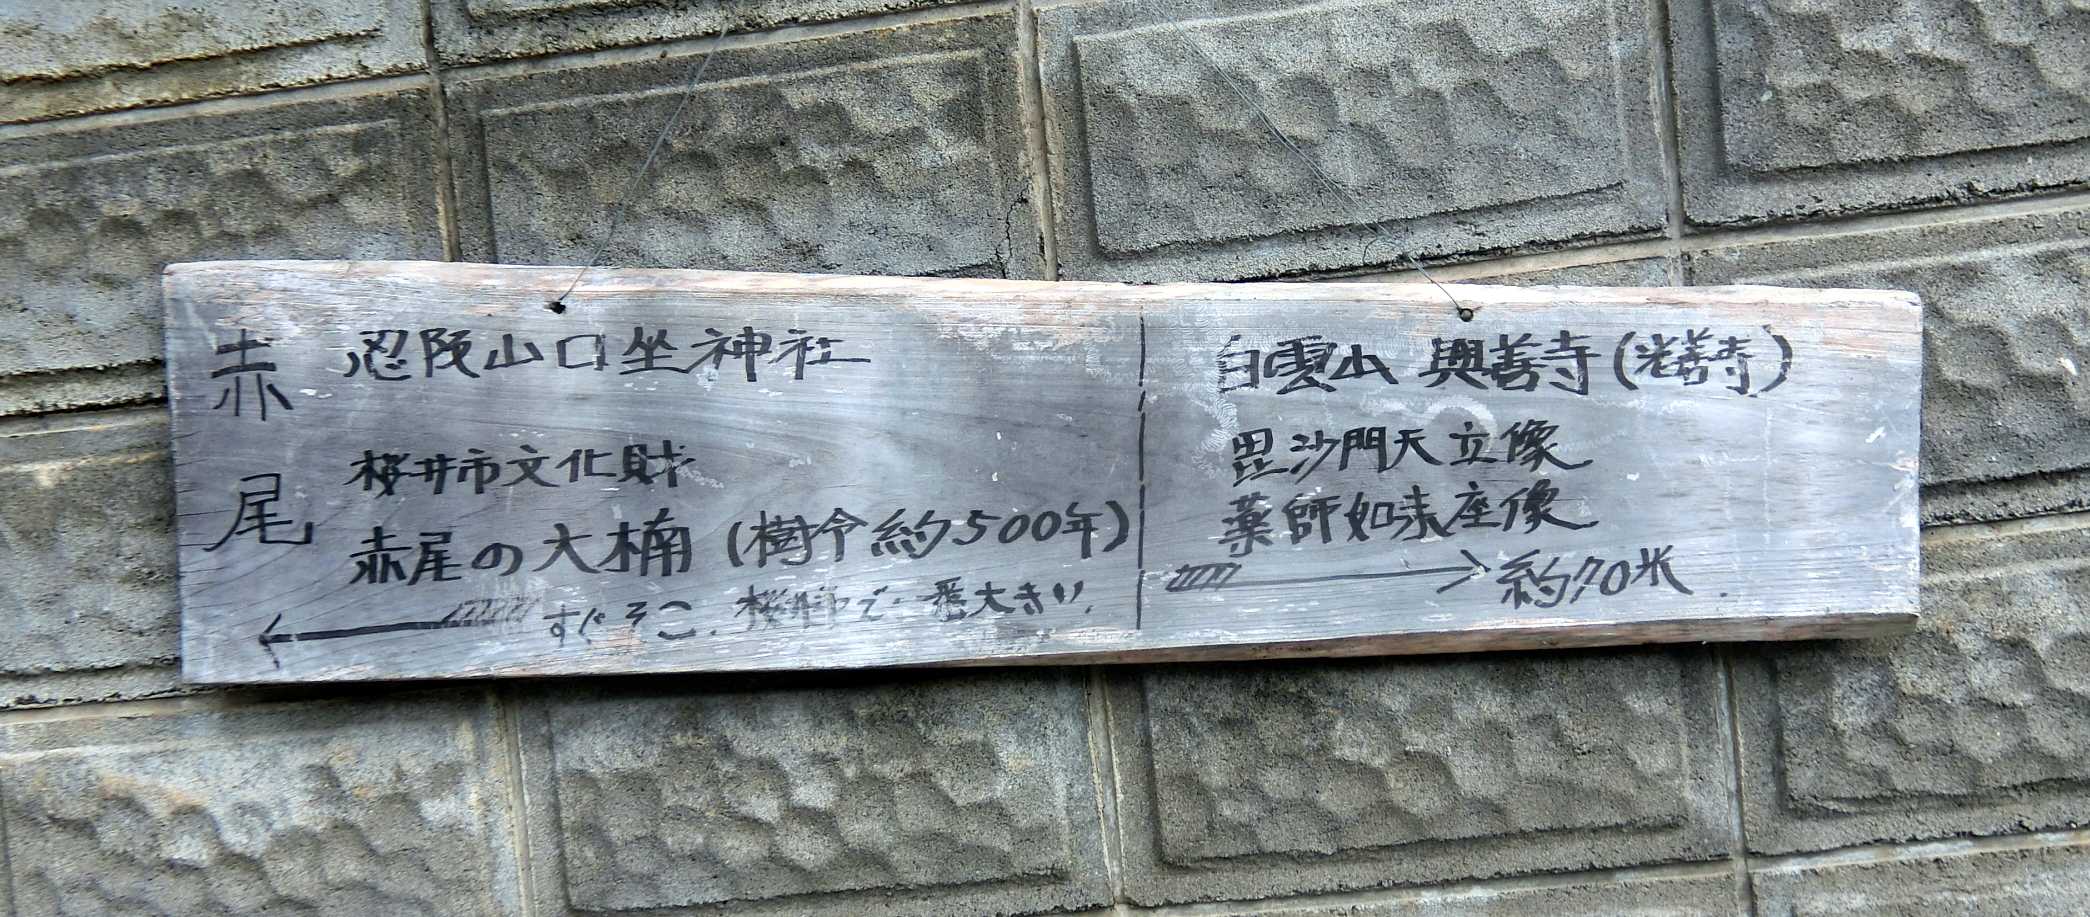 赤尾
忍阪山口坐神社
桜井市文化財
赤尾の大楠(樹令約500年)
すぐそこ. 桜井市で一番大きい.
白雲山 興善寺(光善寺)
毘沙門天立像
薬師如来座像
約70米